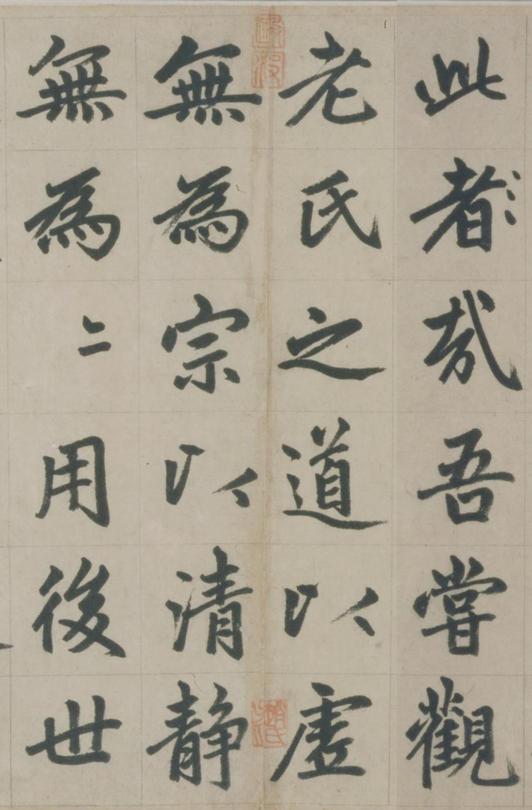 此者哉吾嘗觀
老氏之道以虛
無為宗以清静
無為〻用後世